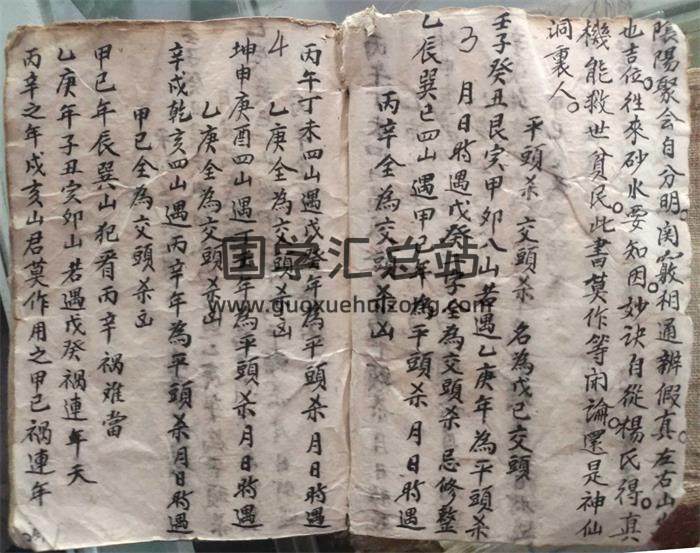 陰陽聚会自分明。関竅相通辨假真。左右山
也吉位往來砂水要知因。妙訣自從楊氏得。真
機能救世貧民。此書莫作等闲論。還是神仙
洞裏人。
平頭杀 交頭杀 名為戊己交頭
壬子癸丑艮亥甲卯八山若遇乙庚年為平頭杀
3 月日時遇戊癸全為交頭杀忌修整
乙辰巽巳四山遇甲己年為平頭杀 月日時遇
丙辛全為交頭杀凶
丙午丁未四山遇戊癸年為平頭杀月日時遇
4 乙庚全為交頭杀凶
坤申庚酉四山遇丁壬年為平頭杀月日時遇
乙庚全為交頭杀凶
辛戌乾亥四山遇丙辛年為平頭杀月日時遇
甲己全為交頭杀凶
甲己年辰巽山犯着丙辛禍难當
乙庚年子丑亥卯山若遇戊癸禍連年天
丙辛之年戌亥山君莫作用之甲己禍連年
国学汇总站
www.guoxuehuizong.com